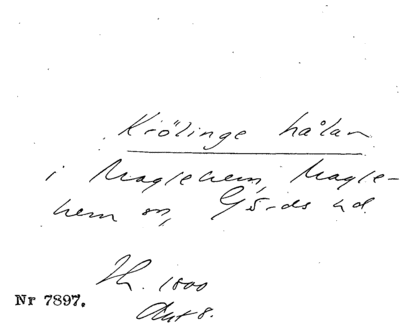 Kiölinge hålan
i Maglehem, Magle-
hem sn, Gärds hd.
Th. 1800
Akt 8.
Nr 7897.